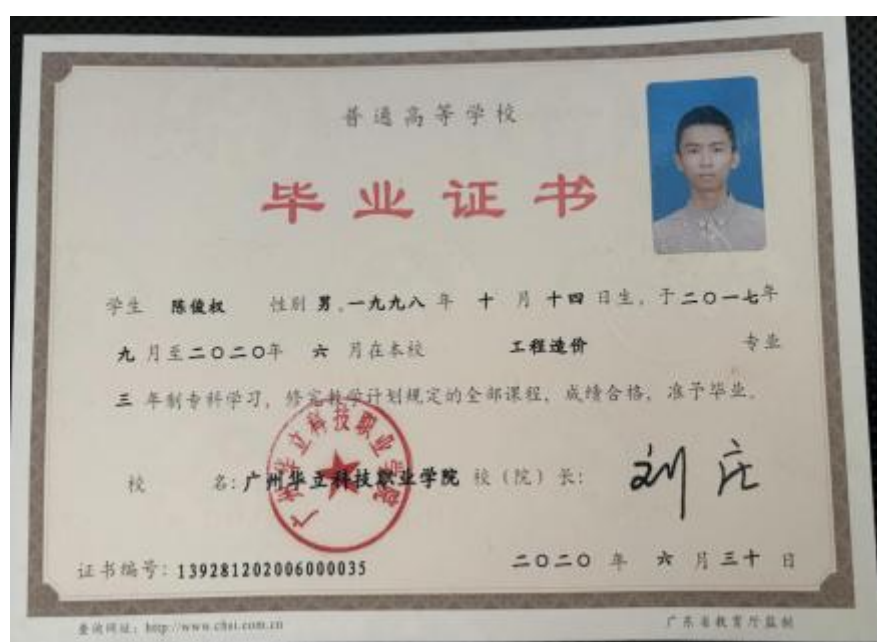 普通高等学校
毕业证书
学生 陈俊权 性别 男,一九九八 年 十 月 十四 日生,于二〇一七年
九 月至二〇二〇年 六 月在本校 工程造价 专业
三 年制专科学习,修完教学计划规定的全部课程,成绩合格,准予毕业。
校 名:广州华立科技职业学院 校(院)长: 刘庄
广州华立科技职业学院
证书编号:139281202006000035 二〇二〇 年 六 月三十 日
查询网址:http://www.chsi.com.cn 广东省教育厅监制